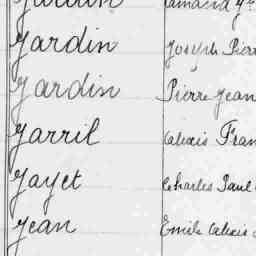 Jardin
Jardin Joseph Pierr
Jardin Pierre Jean
Jarril Alexis Fran
Jayet Charles Paul
Jean Emile Alexis